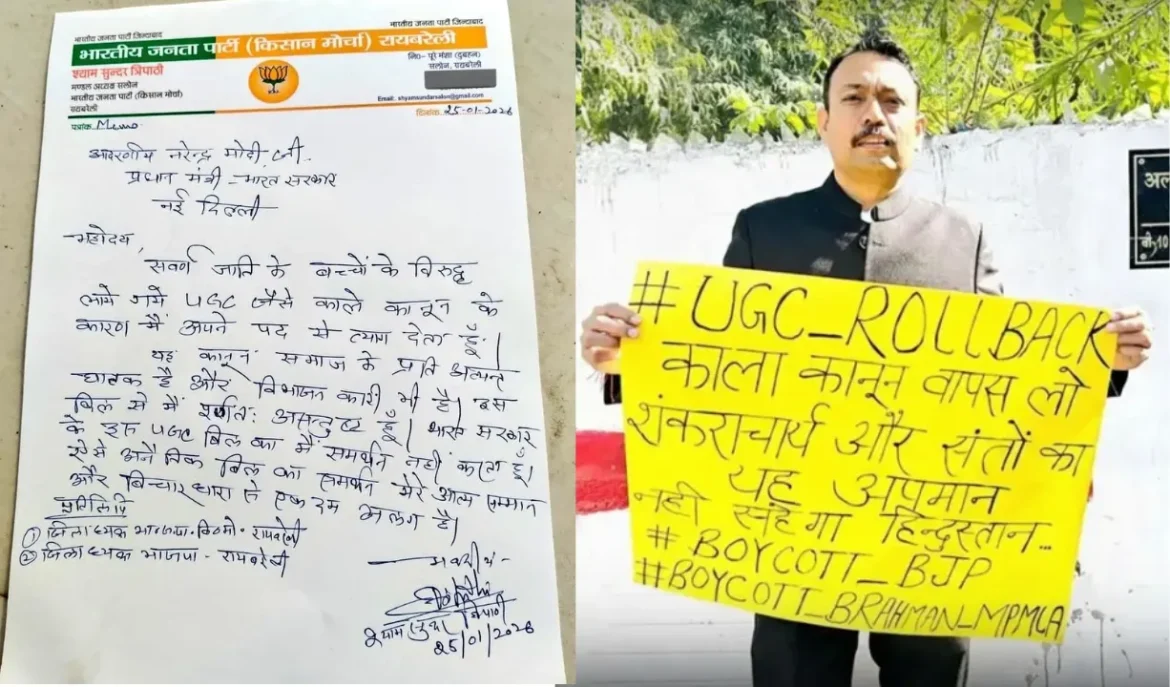 भारतीय जनता पार्टी जिन्दाबाद
भारतीय जनता पार्टी जिन्दाबाद
भारतीय जनता पार्टी (किसान मोर्चा) रायबरेली
श्याम सुन्दर त्रिपाठी
मण्डल अध्यक्ष सलोन
भारतीय जनता पार्टी (किसान मोर्चा)
रायबरेली
नि०- पूरे मंशा
सलोन, रायबरेली
Email: shyamsundarsalon@gmail.com
पत्रांक Memo
दिनांक 25-01-2026
आदरणीय नरेन्द्र मोदी जी
प्रधान मंत्री - भारत सरकार
नई दिल्ली
महोदय,
सवर्ण जाति के बच्चों के विरुद्ध
लाये गये UGC जैसे काले कानून के
कारण मैं अपने पद से त्याग देता हूँ।
यह कानून समाज के प्रति अत्यन्त
घातक है और विभाजन कारी भी है। इस
बिल से मैं पूर्णतः असन्तुष्ट हूँ। भारत सरकार
के इस UGC बिल का मैं समर्थन नहीं करता हूँ।
ऐसे अनैतिक बिल का समर्थन मेरे आत्म सम्मान
और विचारधारा से एकदम अलग है।
प्रतिलिपि
① जिलाध्यक्ष भाजपा किमो - रायबरेली
② जिलाध्यक्ष भाजपा - रायबरेली
भवदीय
श्याम सुन्दर त्रिपाठी
25/01/2026
#UGC_ROLLBACK
काला कानून वापस लो
शंकराचार्य और संतों का
यह अपमान
नही सहेगा हिन्दुस्तान...
#BOYCOTT_BJP
#BOYCOTT_BRAHMAN_MPMLA